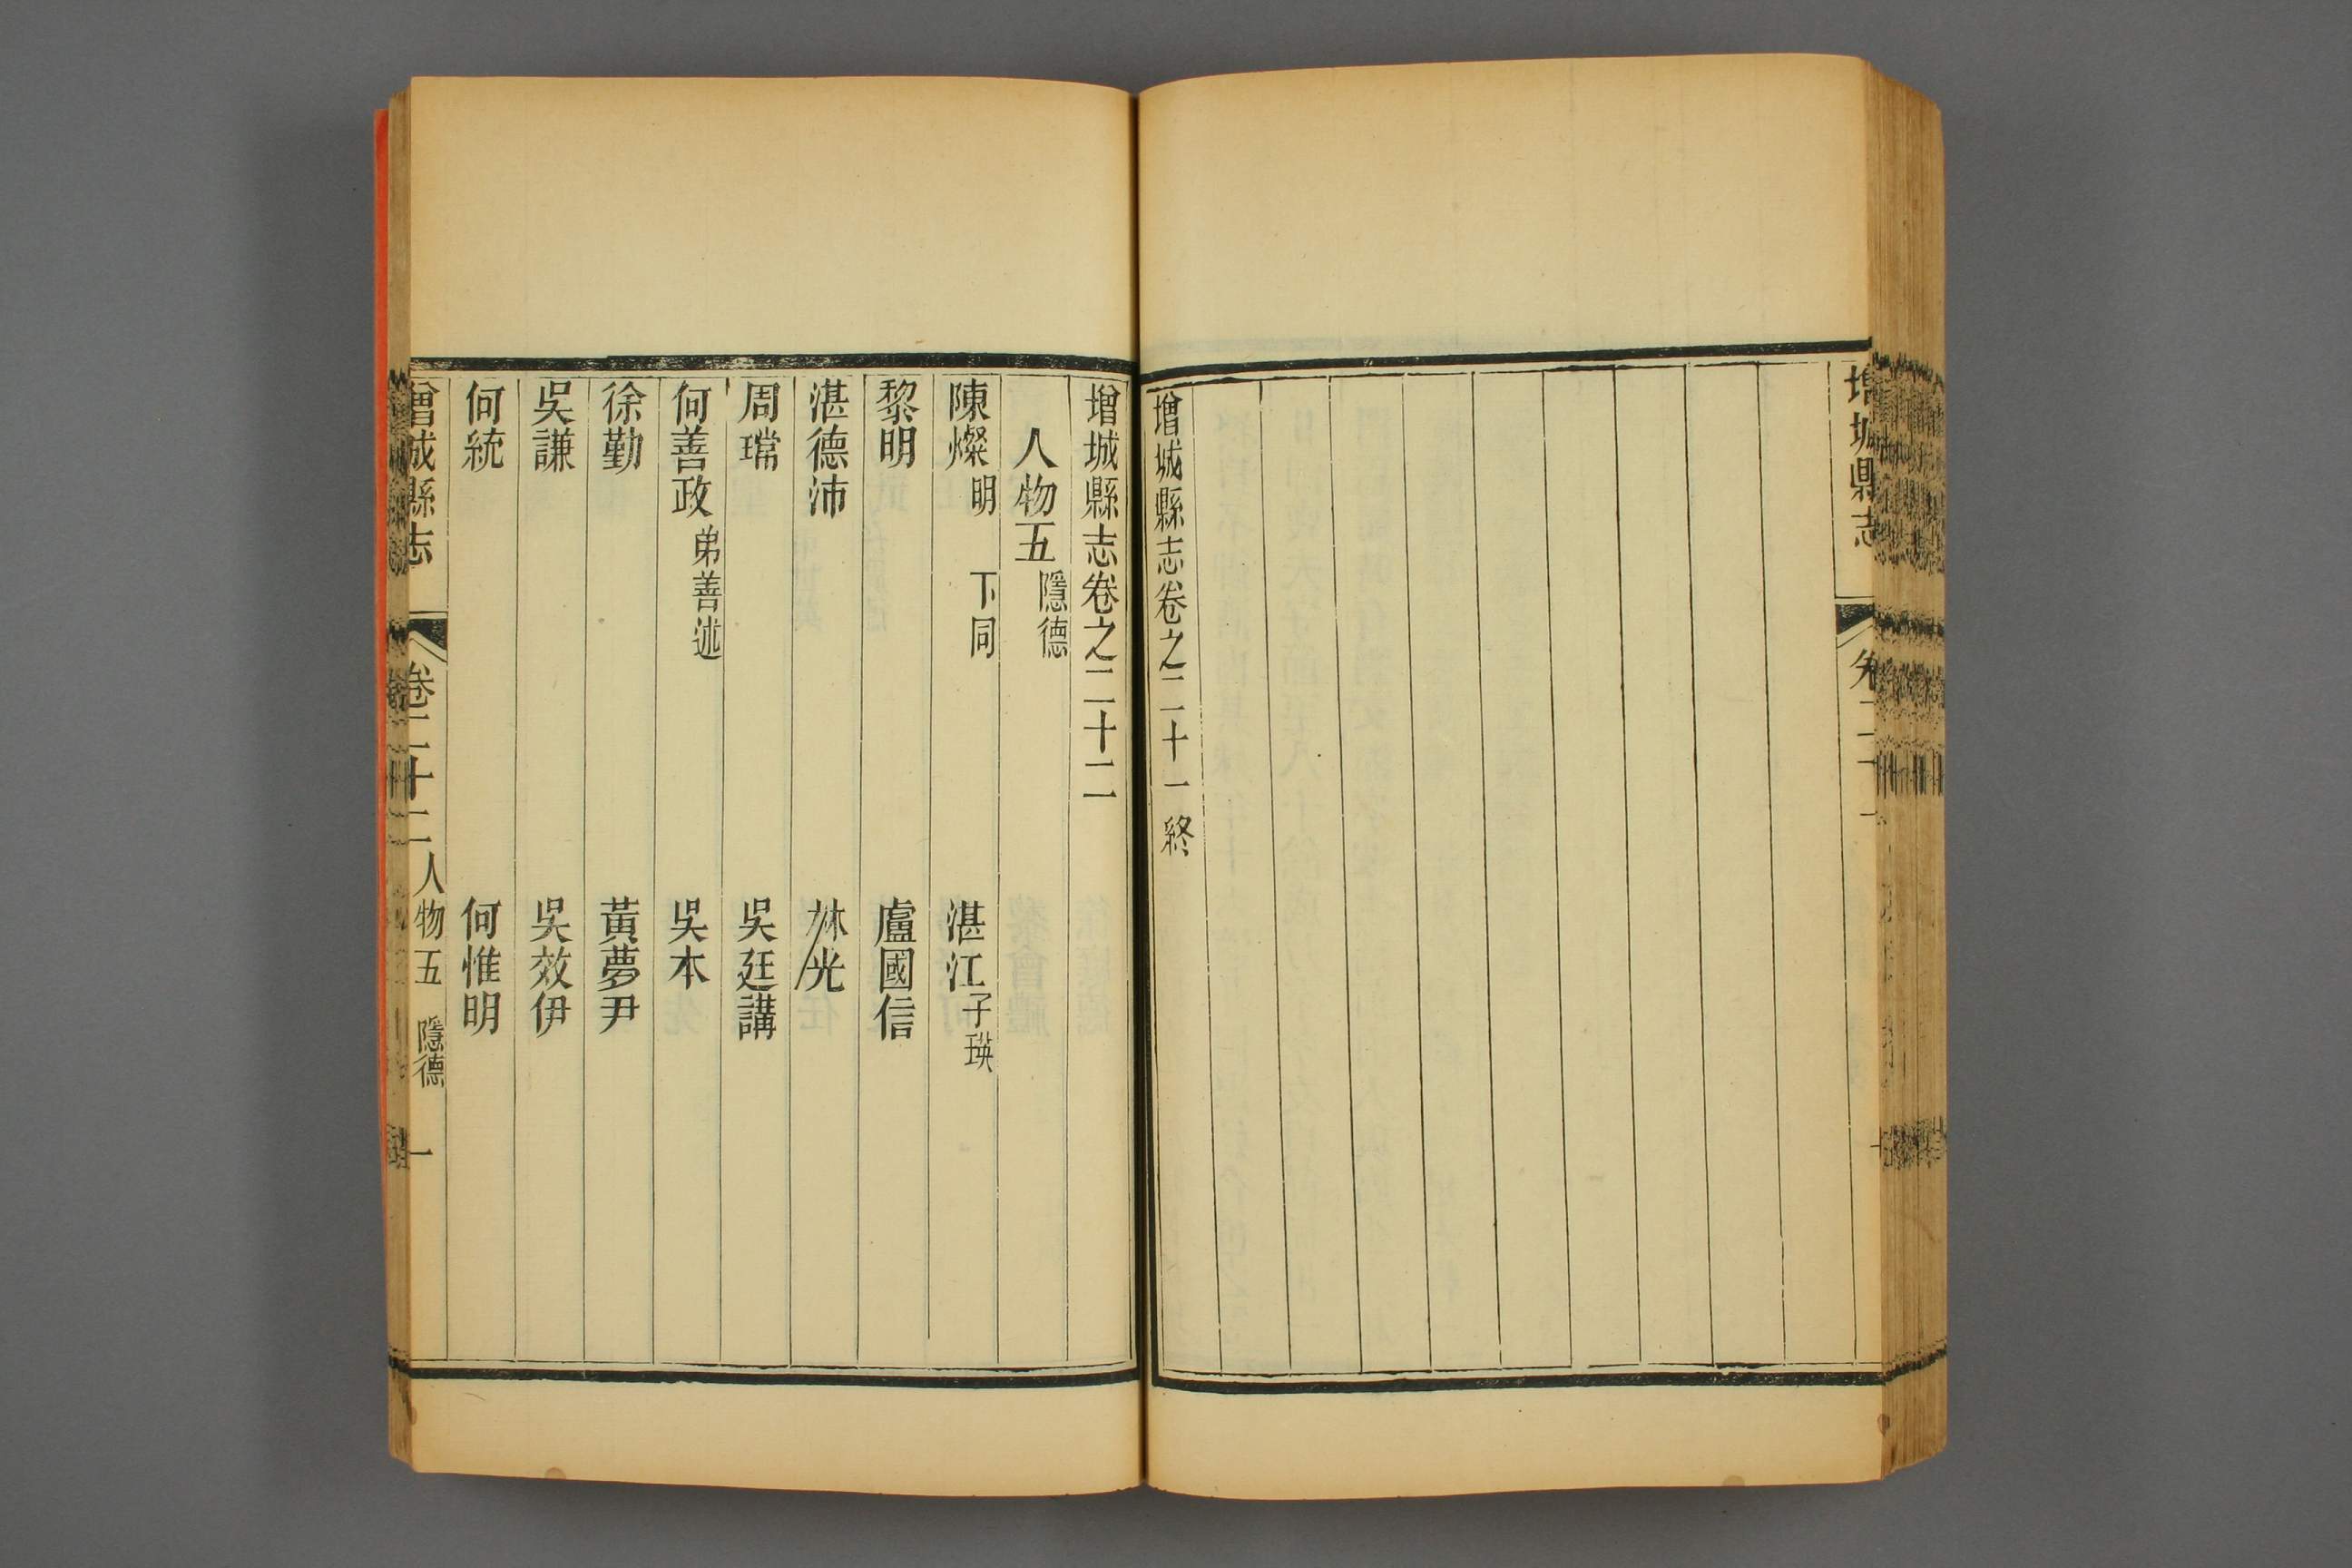 增城縣志
卷二十一
增城縣志卷之二十一終
增城縣志卷之二十二
人物五 隱德
陳燦 明 下同 湛江 子瑛
黎明 盧國信
湛德沛 林光
周璫 吳廷講
何善政 弟善述 吳本
徐勤 黃夢尹
吳謙 吳效伊
何統 何惟明
增城縣志 卷二十二 人物五 隱德 一